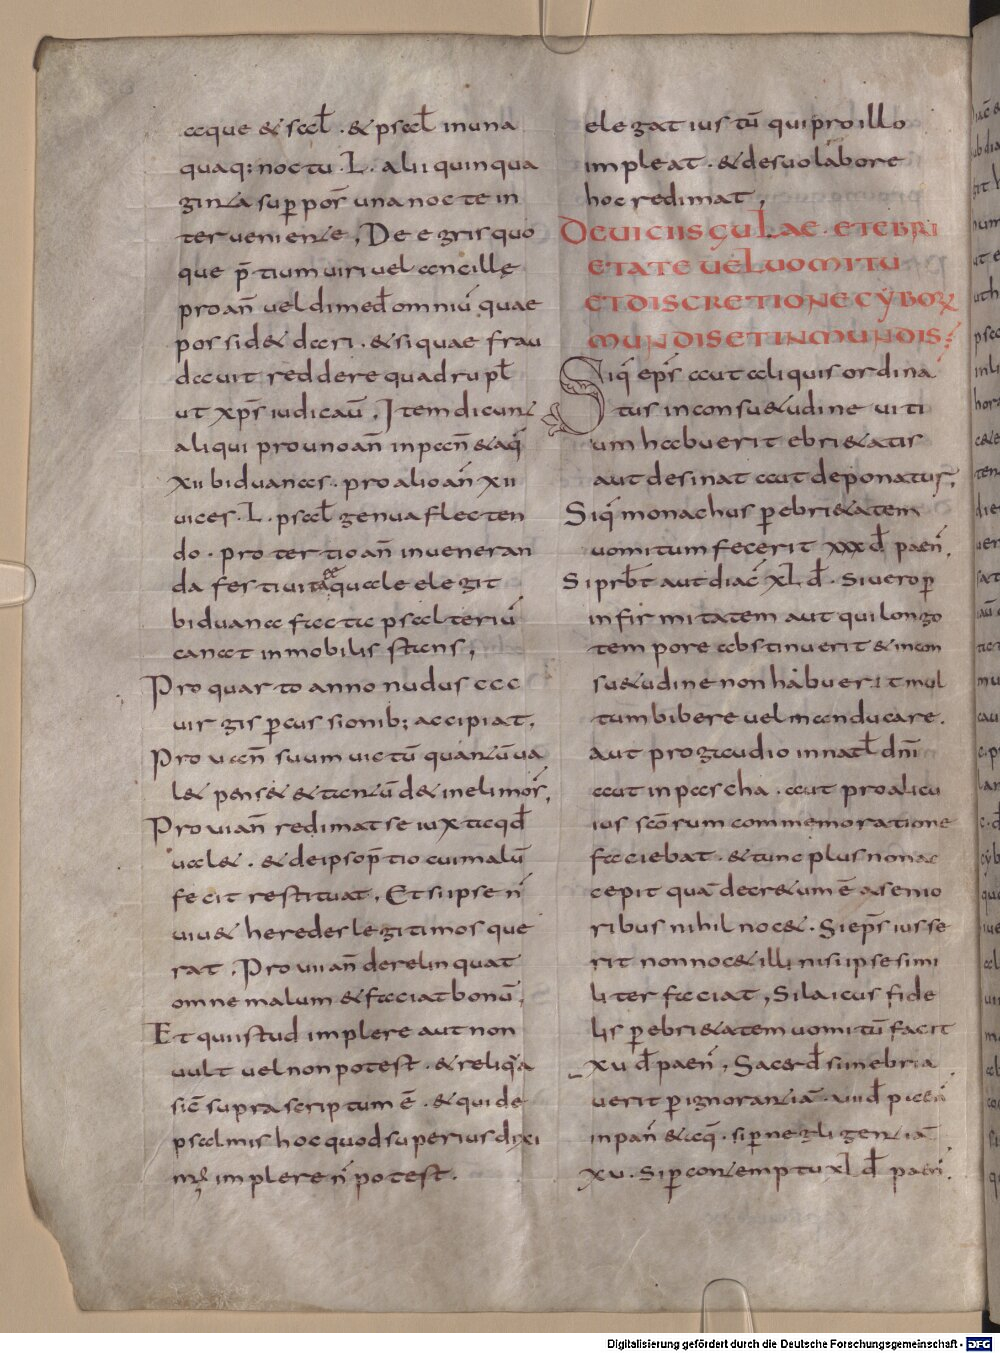 aque & sal̄ . & psal̄ in una
quaq; noctu . L . alii quinqua
ginta sup̄ pos̄ una nocte in
terueniente, De egris quo
que p̄tium uiri uel ancille
pro an̄ uel dimed̄ omniū quae
possid& dari . & si quae frau
dauit reddere quadrupl̄
ut xp̄s iudicaū, Item dicunt
aliqui pro uno an̄ in pan̄ & aq̄
xii biduanas . pro alio an̄ xii
uices . L . psal̄ genua flecten
do . pro tertio an̄ in ueneran
da festiuitate quale elegit
biduana facta psalteriū
canat inmobilis stans,
Pro quarto anno nudus ccc
uirgis p̄cussionib; accipiat.
Pro v an̄ suum uictū quantū ua
l& pens& & tantū d& in elimos̄,
Pro vi an̄ redimat se iuxta qd̄
ual& . & de ipso p̄tio cui malū
fecit restituat, Et si ipse n̄
uiu& heredes legitimos que
rat, Pro vii an̄ derelinquat
omne malum & faciat bonū,
Et qui istud implere aut non
uult uel non potest . & reliq̄a
sic̄ supra scriptum ē . & qui de
psalmis hoc quod superius dixi
m; implere n̄ potest .
elegat iustū qui pro illo
impleat . & de suo labore
hoc redimat,
DE UICIIS GULAE . ET EBRI
ETATE UEL UOMITU
ET DISCRETIONE CYBORꝜ
MUNDIS ET INMUNDIS;
Siq̄ ep̄s aut aliquis ordina
tus in consu&udine uiti
um habuerit ebri&atis
aut desinat aut deponatur,
Siq̄ monachus p̄ ebri&atem
uomitum fecerit xxx d̄ paen̄,
Si prb̄t aut diac̄ xl d̄ . Si uero p̄
infirmitatem aut qui longo
tempore abstinuerit & in con
su&udine non habuerit mul
tum bibere uel manducare .
aut pro gaudio in nat̄l dn̄i
aut in pascha . aut pro alicu
ius scōrum commemoratione
faciebat . & tunc plus non ac
cepit quā decr&um ē a senio
ribus nihil noc& . Si ep̄s iusse
rit non noc& illi nisi ipse simi
liter faciat, Si laicus fide
lis p̄ ebri&atem uomitū facit
xv d̄ paen̄, Sacerd̄ si inebria
uerit p̄ ignorantiā . vii d̄ paen̄
in pan̄ & aq̄ . si p̄ neglegentiā
xv . Si p̄ contemptu xl d̄ paen̄ .
Digitalisierung gefördert durch die Deutsche Forschungsgemeinschaft - DFG